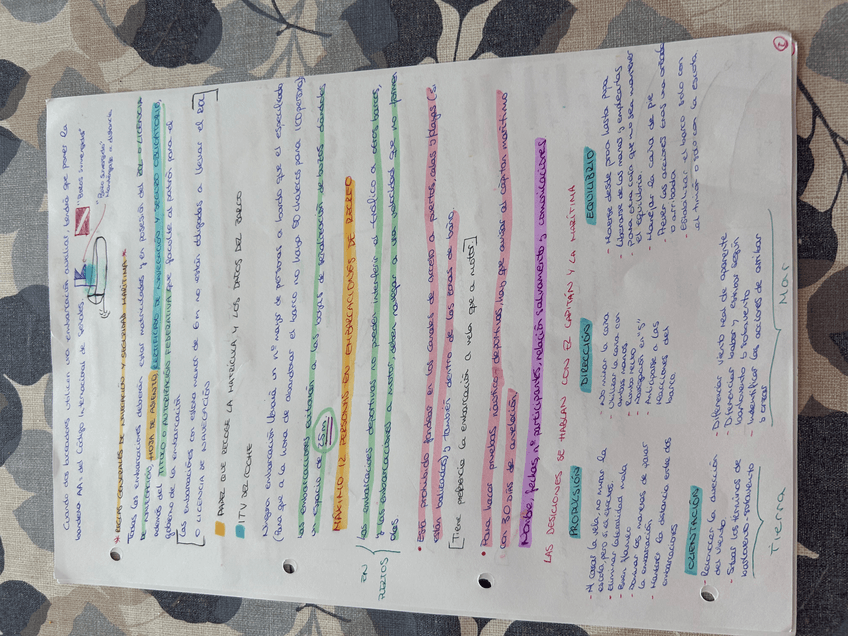 Cuando dos buceadores utilicen una embarcación auxiliar, tendrá que poner la
bandera "A" del Código Internacional de Señales.
"Buceo sumergido"
"Buzo sumergido"
Manténgase a distancia
* REGLAS GENERALES DE NAVEGACIÓN Y SEGURIDAD MARÍTIMA *
Todas las embarcaciones deberán estar matriculadas y en posesión del ROL o LICENCIA
DE NAVEGACIÓN, HOJA DE ASIENTO, CERTIFICADO DE NAVEGACIÓN Y SEGURO OBLIGATORIO,
además del título o AUTORIZACIÓN FEDERATIVA que faculte al patrón para el
gobierno de la embarcación
[Las embarcaciones con eslora menor de 6m no están obligadas a llevar el ROL
o LICENCIA DE NAVEGACIÓN]
PAPEL QUE RECOGE LA MATRÍCULA Y LOS DATOS DEL BARCO
ITV DEL COCHE
Ninguna embarcación llevará un nº mayor de personas a bordo que el especificado
(Para que a la hora de abandonar el barco no haya 50 chalecos para 100 personas)
Las embarcaciones evitarán a las boyas de señalización de buzos dándoles
un espacio de 25m
MÁXIMO 12 PERSONAS EN EMBARCACIONES DE RECREO
EN
PUERTOS
Las embarcaciones deportivas no pueden interferir el tráfico a otros barcos,
y las embarcaciones a motor deben navegar a una velocidad que no formen
olas
• Está prohibido fondear en los canales de acceso a puertos, calas y playas (si
están balizados) y también dentro de las zonas de baño.
[Tiene preferencia la embarcación a vela que a motor]
• Para hacer pruebas náutico-deportivas, hay que avisar al capitán marítimo
con 30 días de antelación
Nombre, fechas, nº participantes, relación salvamento y comunicaciones
LAS DESICIONES SE HABLAN CON EL CAPITÁN Y LA MARÍTIMA
PROPULSIÓN
- Al cazar la vela, no mirar la
escota, pero sí el efecto.
- Eliminar lateralidad mala
- Evitar flameo
- Darnos los manejos de parar
la embarcación
- Mantener la distancia entre dos
embarcaciones
DIRECCIÓN
- No mirar la caña
- Utilizar la caña con
ambas manos
- Rumbo recto
- Navegación en "S"
- Anticiparse a las
reacciones del
barco
EQUILIBRIO
- Moverse desde proa hasta popa
- Liberarse de las manos y emplearlas
para otra cosa que no sea mantener
el equilibrio
- Manejar la caña de pie
- Prever las acciones tras una orzada
o arribada
- Estabilizar el barco solo con
el timón o solo con la escota
ORIENTACIÓN
- Reconocer la dirección
del viento
- Situar los términos de
barlovento-sotavento
Tierra
- Diferenciar viento real de aparente
- Diferenciar babor y estribor según
barlovento y sotavento
- Intensificar las acciones de arribar
y orzar
Mar
2